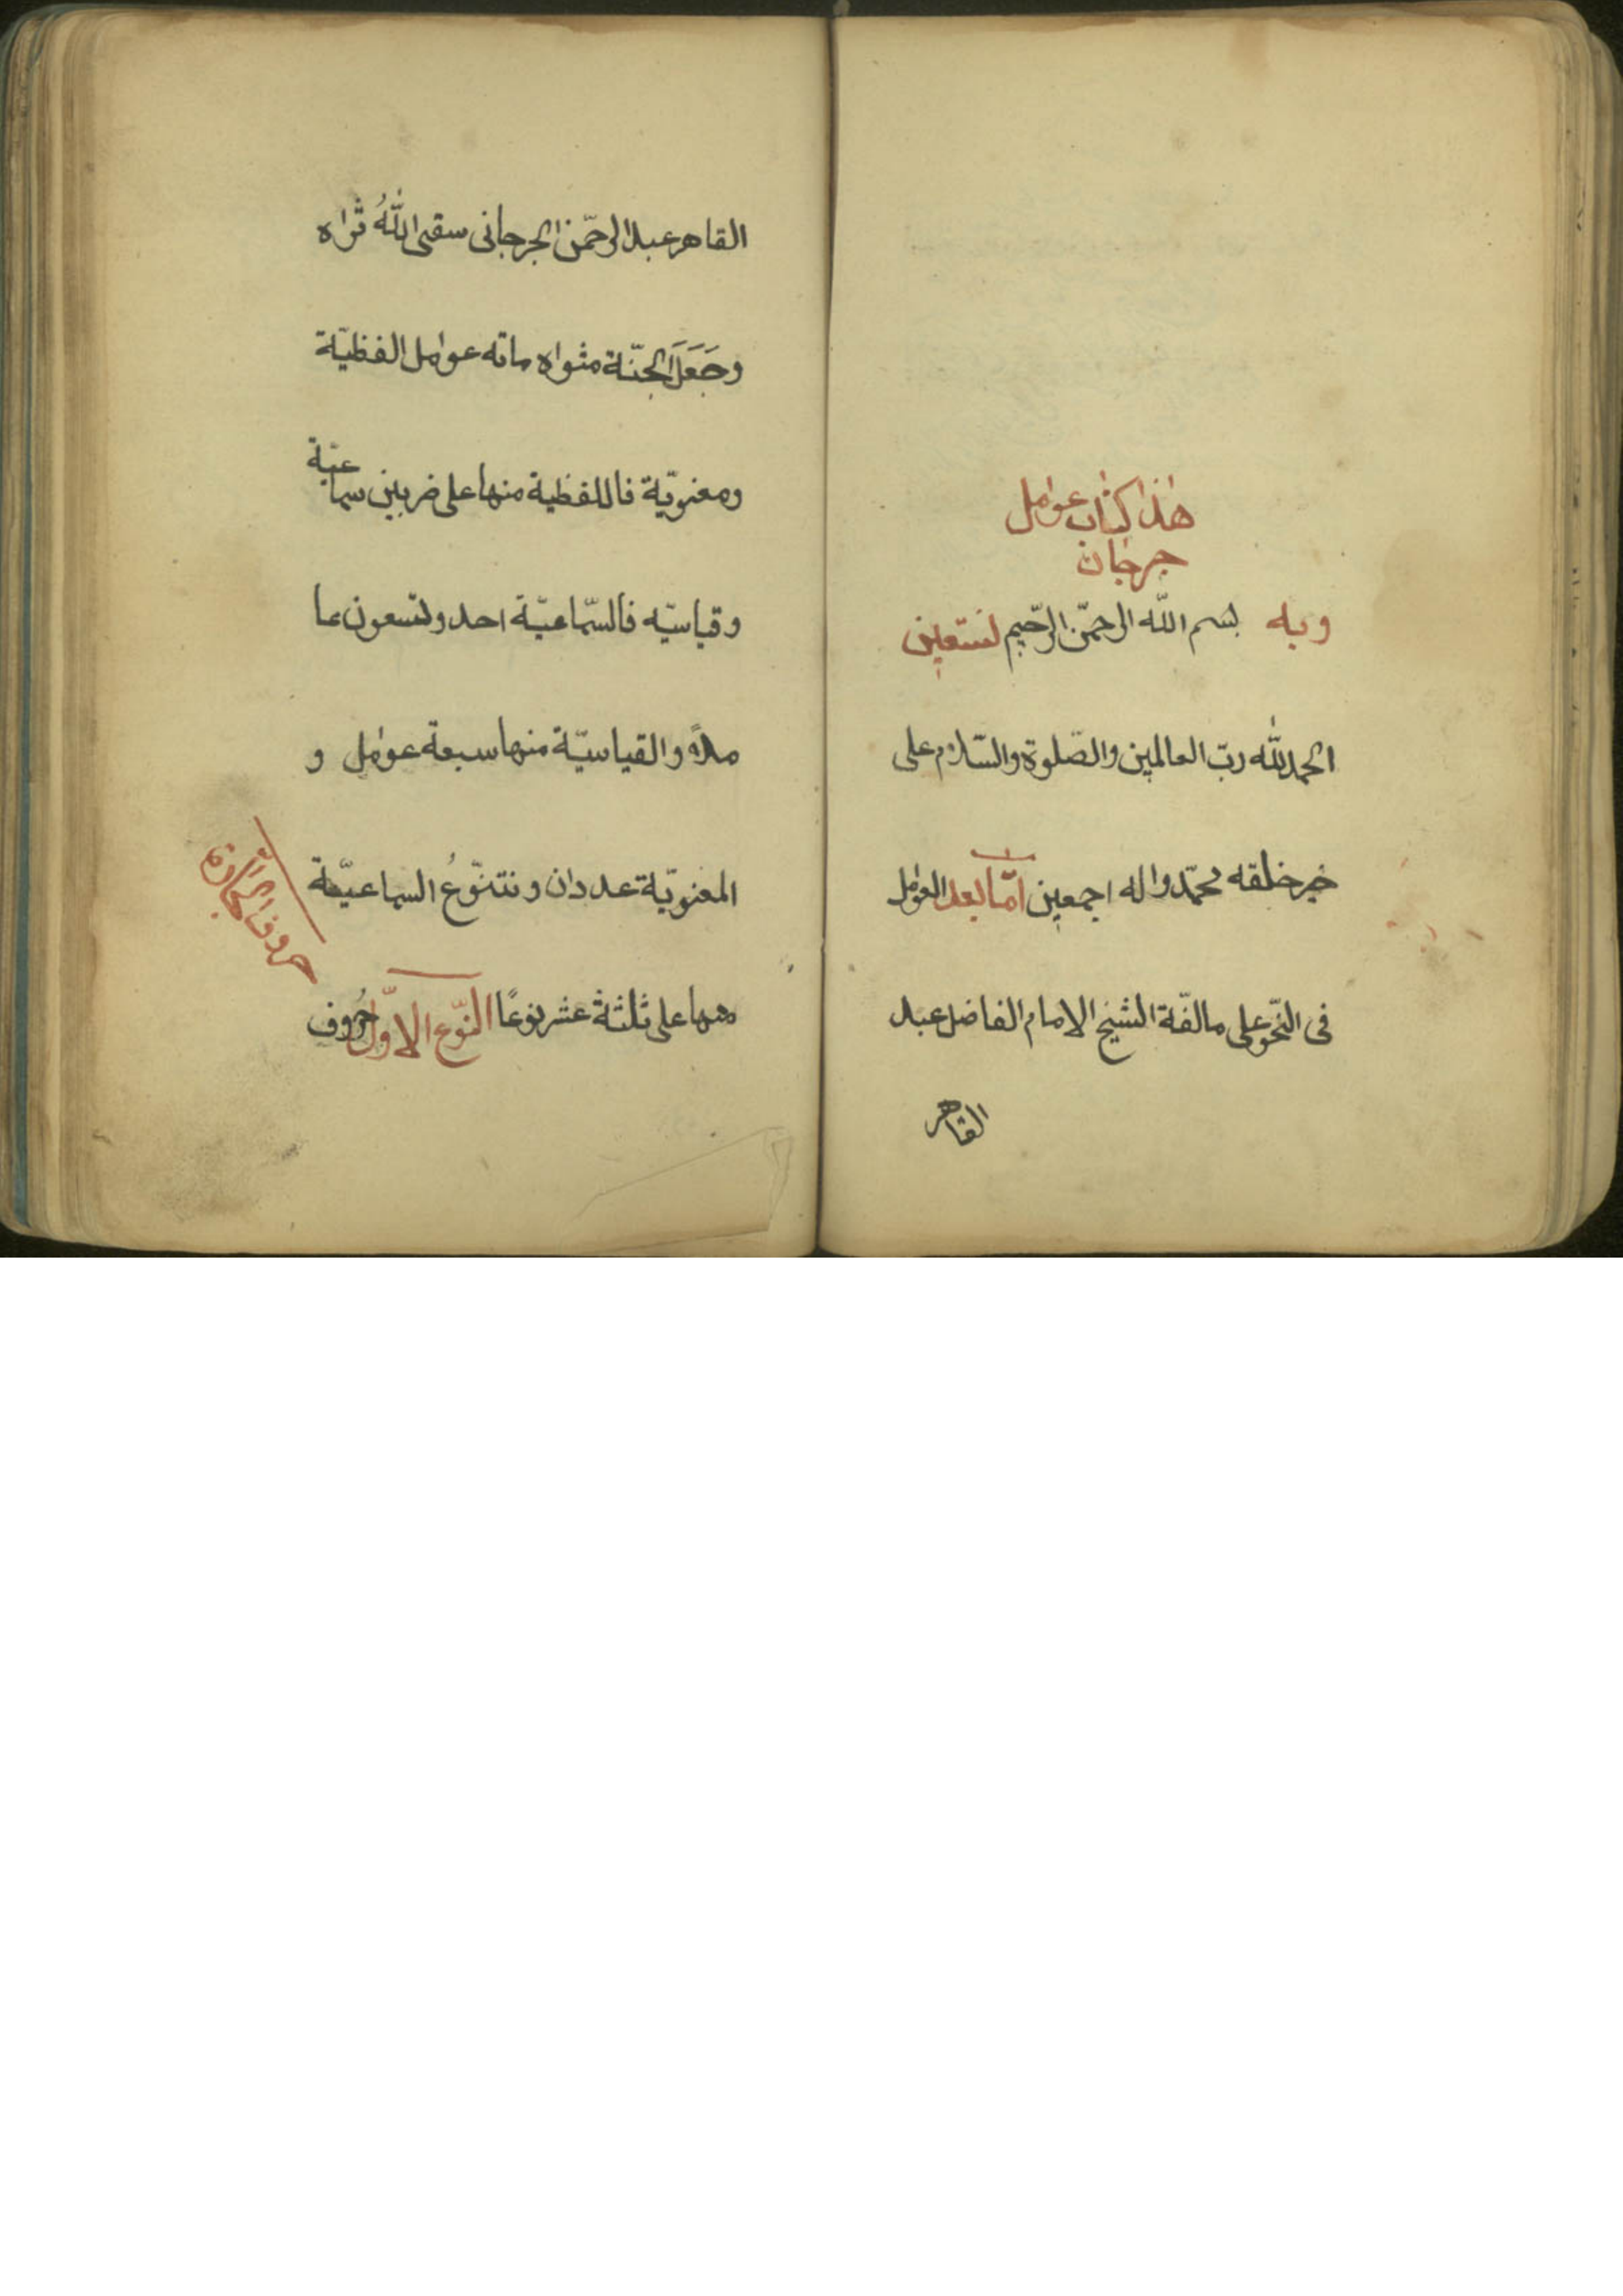 هذا كتاب عوامل
جرجان
وبه بسم الله الرحمن الرحيم نستعين
الحمد لله ربّ العالمين والصّلوة والسّلام على
خير خلقه محمّد واله اجمعين امّا بعد العوامل
فى النّحو على ما الفّة الشيخ الامام الفاضل عبد
القاهر
القاهر عبد الرحمّن الجرجانى سقى اللهُ ثراه
وجَعَلَ الجنّة مثواه مائه عوامل الفظيّة
ومعنويّة فاللفظية منها على ضربين سماعيّة
وقياسيّه فالسّماعيّة احد وتسعون عا
ملاً والقياسيّة منها سبعة عوامل و
المعنويّة عددان وتتنوّعُ السماعيّة
منها على ثلثة عشر نوعًا النّوع الاوّل حُروف
حروف الجارة